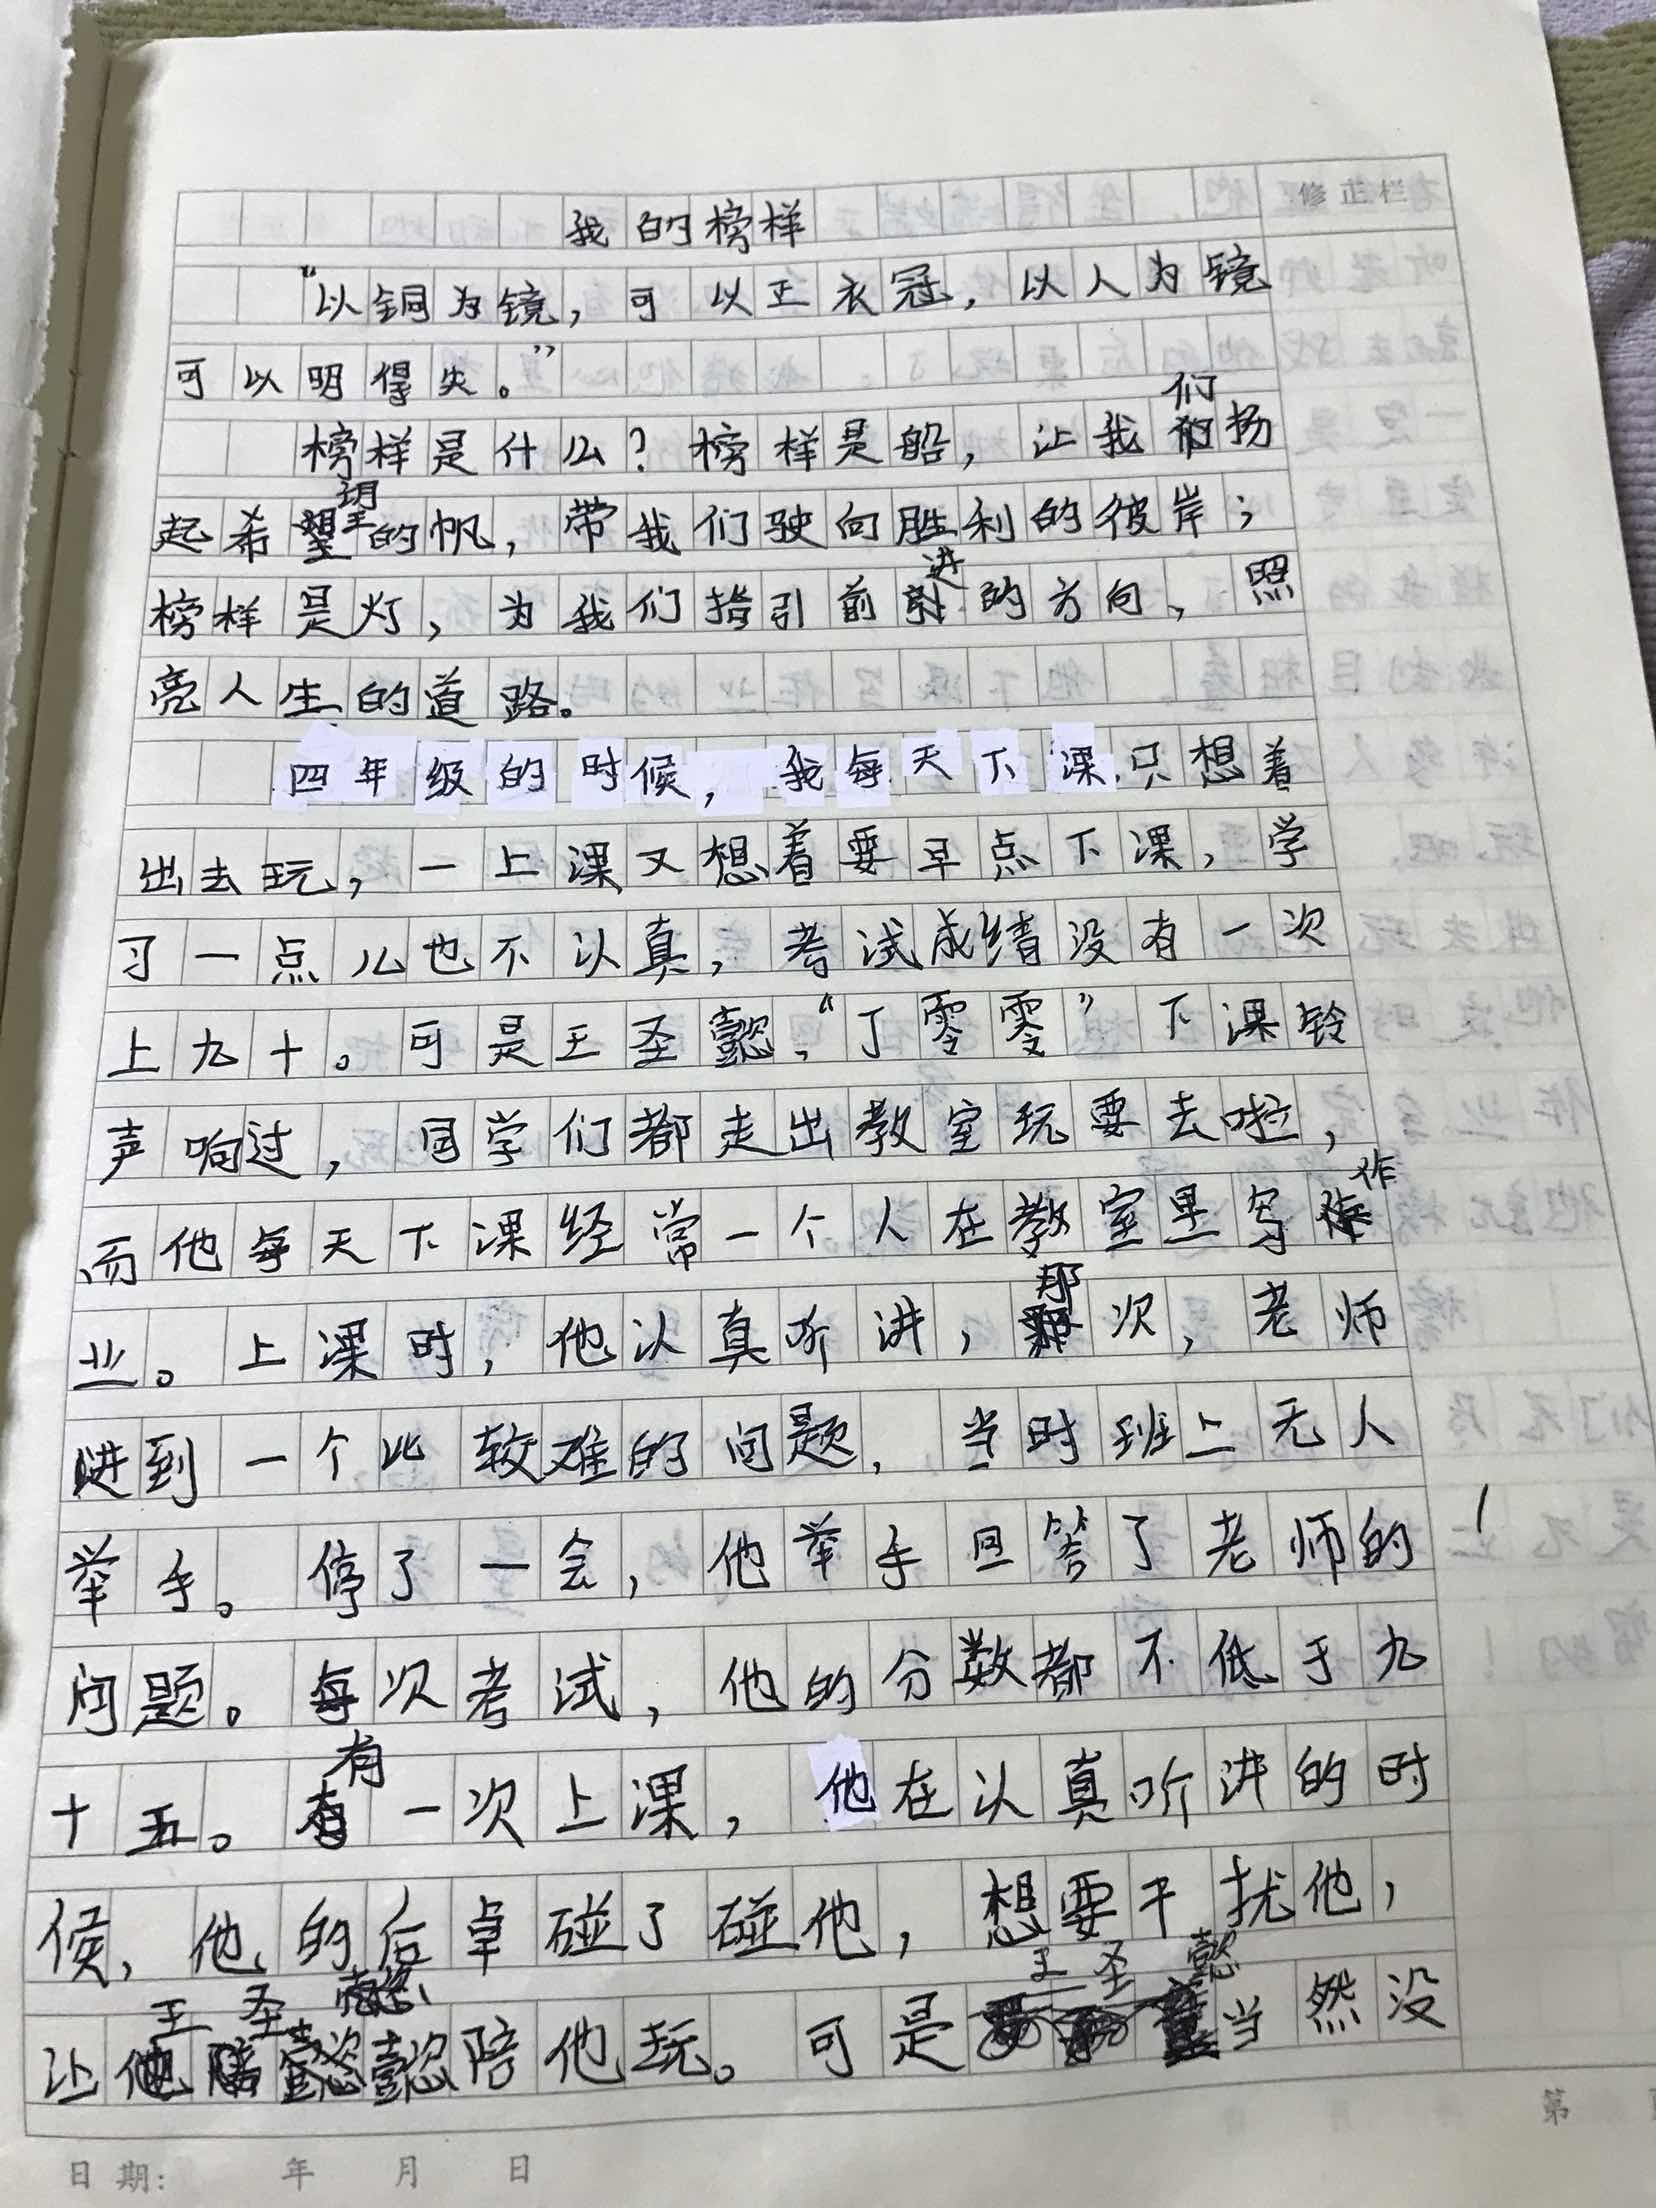 修正栏
我的榜样
“以铜为镜，可以正衣冠，以人为镜
可以明得失。”
榜样是什么？榜样是船，让我们扬
起希望的帆，带我们驶向胜利的彼岸；
榜样是灯，为我们指引前进的方向，照
亮人生的道路。
四年级的时候，我每天下课只想着
出去玩，一上课又想着要早点下课，学
习一点儿也不认真，考试成绩没有一次
上九十。可是王圣懿，“丁零零”下课铃
声响过，同学们都走出教室玩耍去啦，
而他每天下课经常一个人在教室里写作
业。上课时，他认真听讲，那次，老师
讲到一个比较难的问题，当时班上无人
举手。停了一会，他举手回答了老师的
问题。每次考试，他的分数都不低于九
十五。有一次上课，他在认真听讲的时
候，他的后桌碰了碰他，想要干扰他，
让王圣懿陪他玩。可是王圣懿当然没
第
日期： 年 月 日